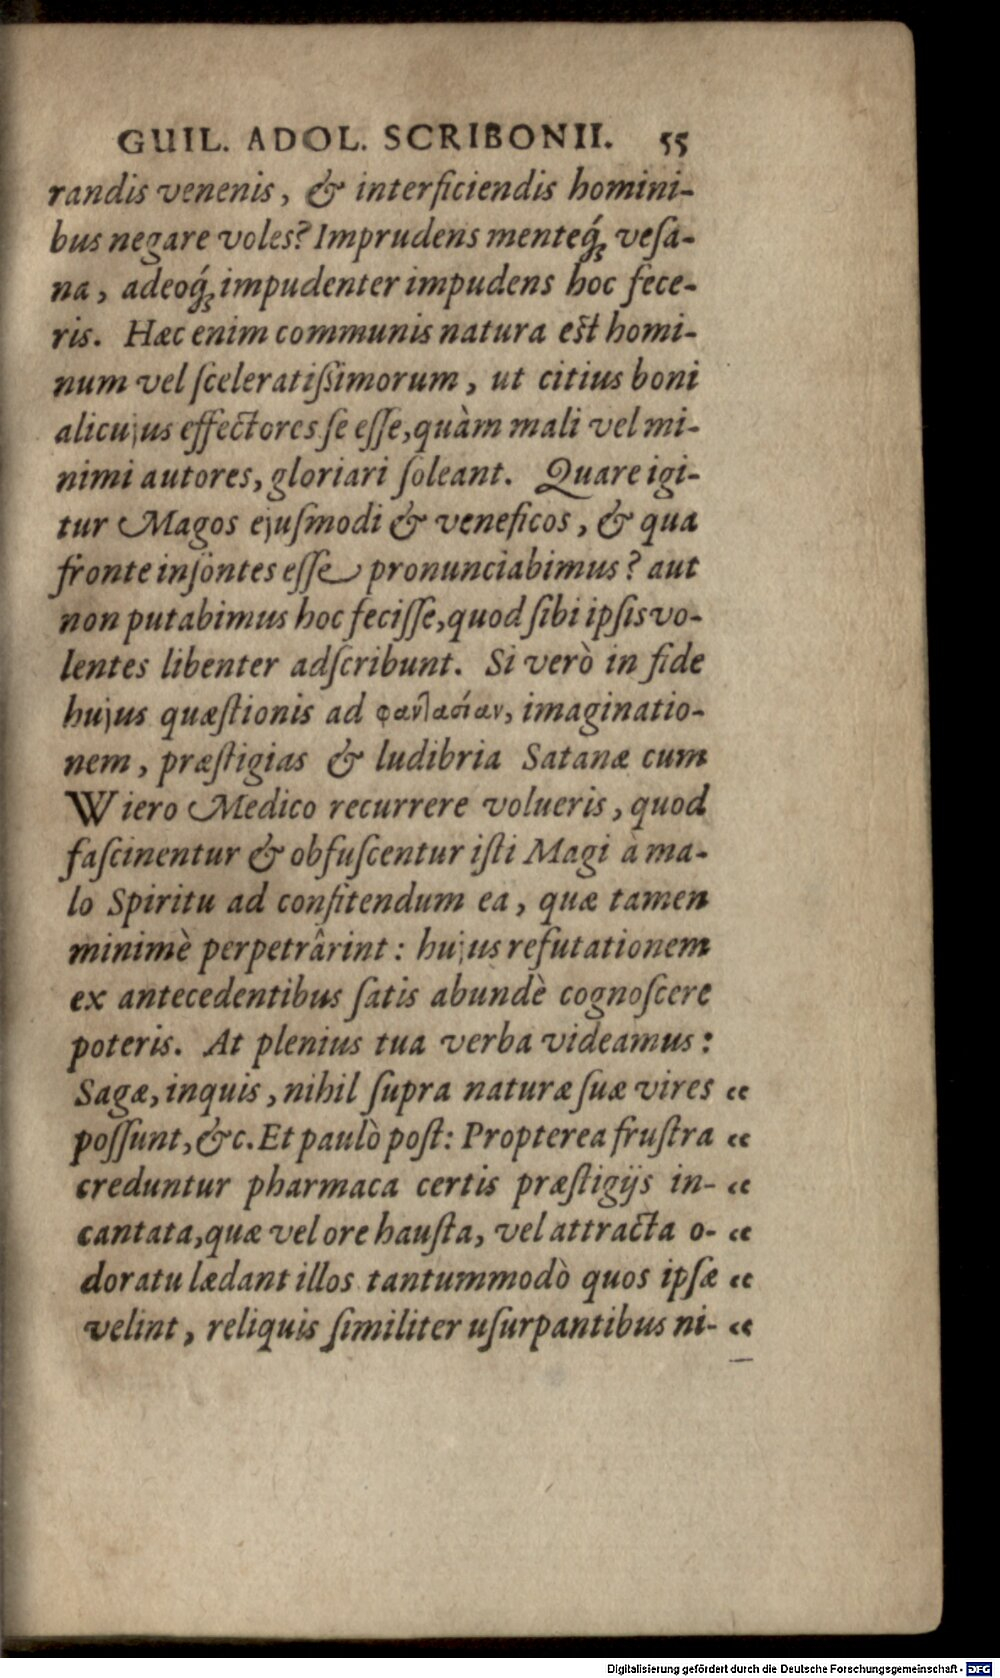 GUIL. ADOL. SCRIBONII. 55
randis venenis, & interficiendis homini-
bus negare voles? Imprudens menteq́; veſa-
na, adeoq́; impudenter impudens hoc fece-
ris. Hæc enim communis natura eſt homi-
num vel ſceleratiſsimorum, ut citius boni
alicujus effectores ſe eſſe, quàm mali vel mi-
nimi autores, gloriari ſoleant. Quare igi-
tur Magos ejuſmodi & veneficos, & qua
fronte inſontes eſſe pronunciabimus? aut
non putabimus hoc feciſſe, quod ſibi ipſis vo-
lentes libenter adſcribunt. Si verò in fide
hujus quæſtionis ad φανλασίαν, imaginatio-
nem, præſtigias & ludibria Satanæ cum
Wiero Medico recurrere volueris, quod
faſcinentur & obfuſcentur iſti Magi à ma-
lo Spiritu ad confitendum ea, quæ tamen
minimè perpetrârint: hujus refutationem
ex antecedentibus ſatis abundè cognoſcere
poteris. At plenius tua verba videamus:
Sagæ, inquis, nihil ſupra naturæ ſuæ vires “
poſſunt, &c. Et paulò poſt: Propterea fruſtra “
creduntur pharmaca certis præſtigijs in- “
cantata, quæ vel ore hauſta, vel attracta o- “
doratu lædant illos tantummodò quos ipſæ “
velint, reliquis ſimiliter uſurpantibus ni- “
Digitalisierung gefördert durch die Deutsche Forschungsgemeinschaft - DFG